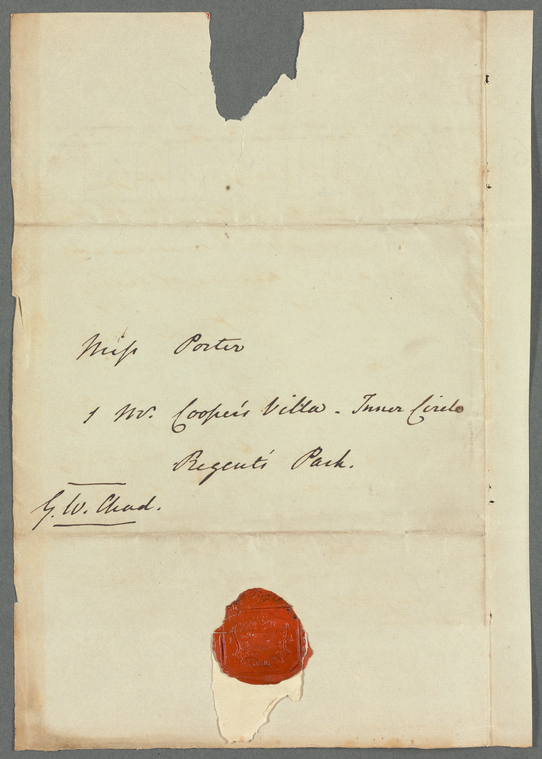 Miss Porter
1 Mr. Cooper's Villa - Inner Circle
Regent's Park.
G. W. Chad.